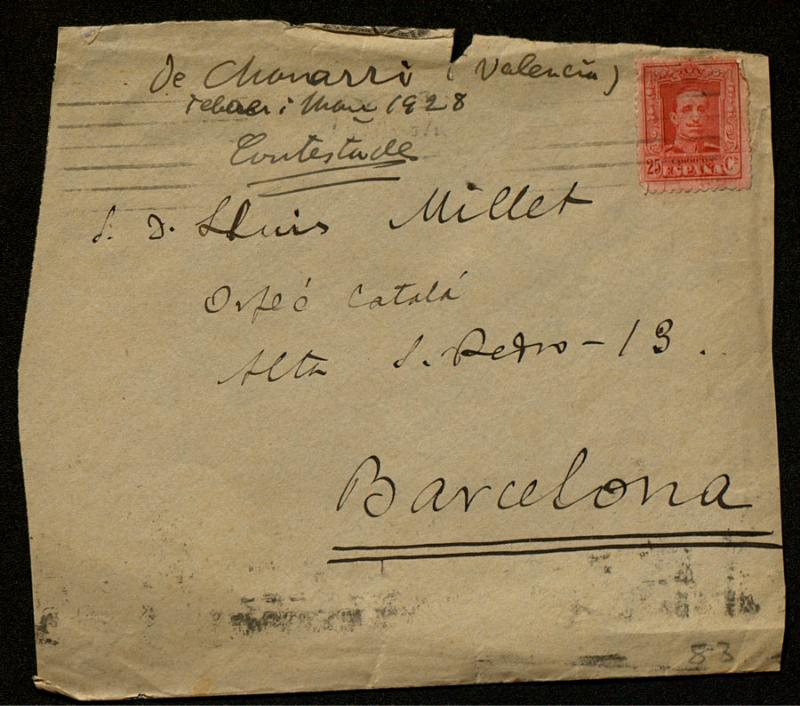 De Chavarri (Valencia)
Febrer i Març 1928
Contestada
S. D. Lluis Millet
Orfeó Català
Alta S. Pedro - 13.
Barcelona
CORREOS
25 ESPAÑA Cs
83